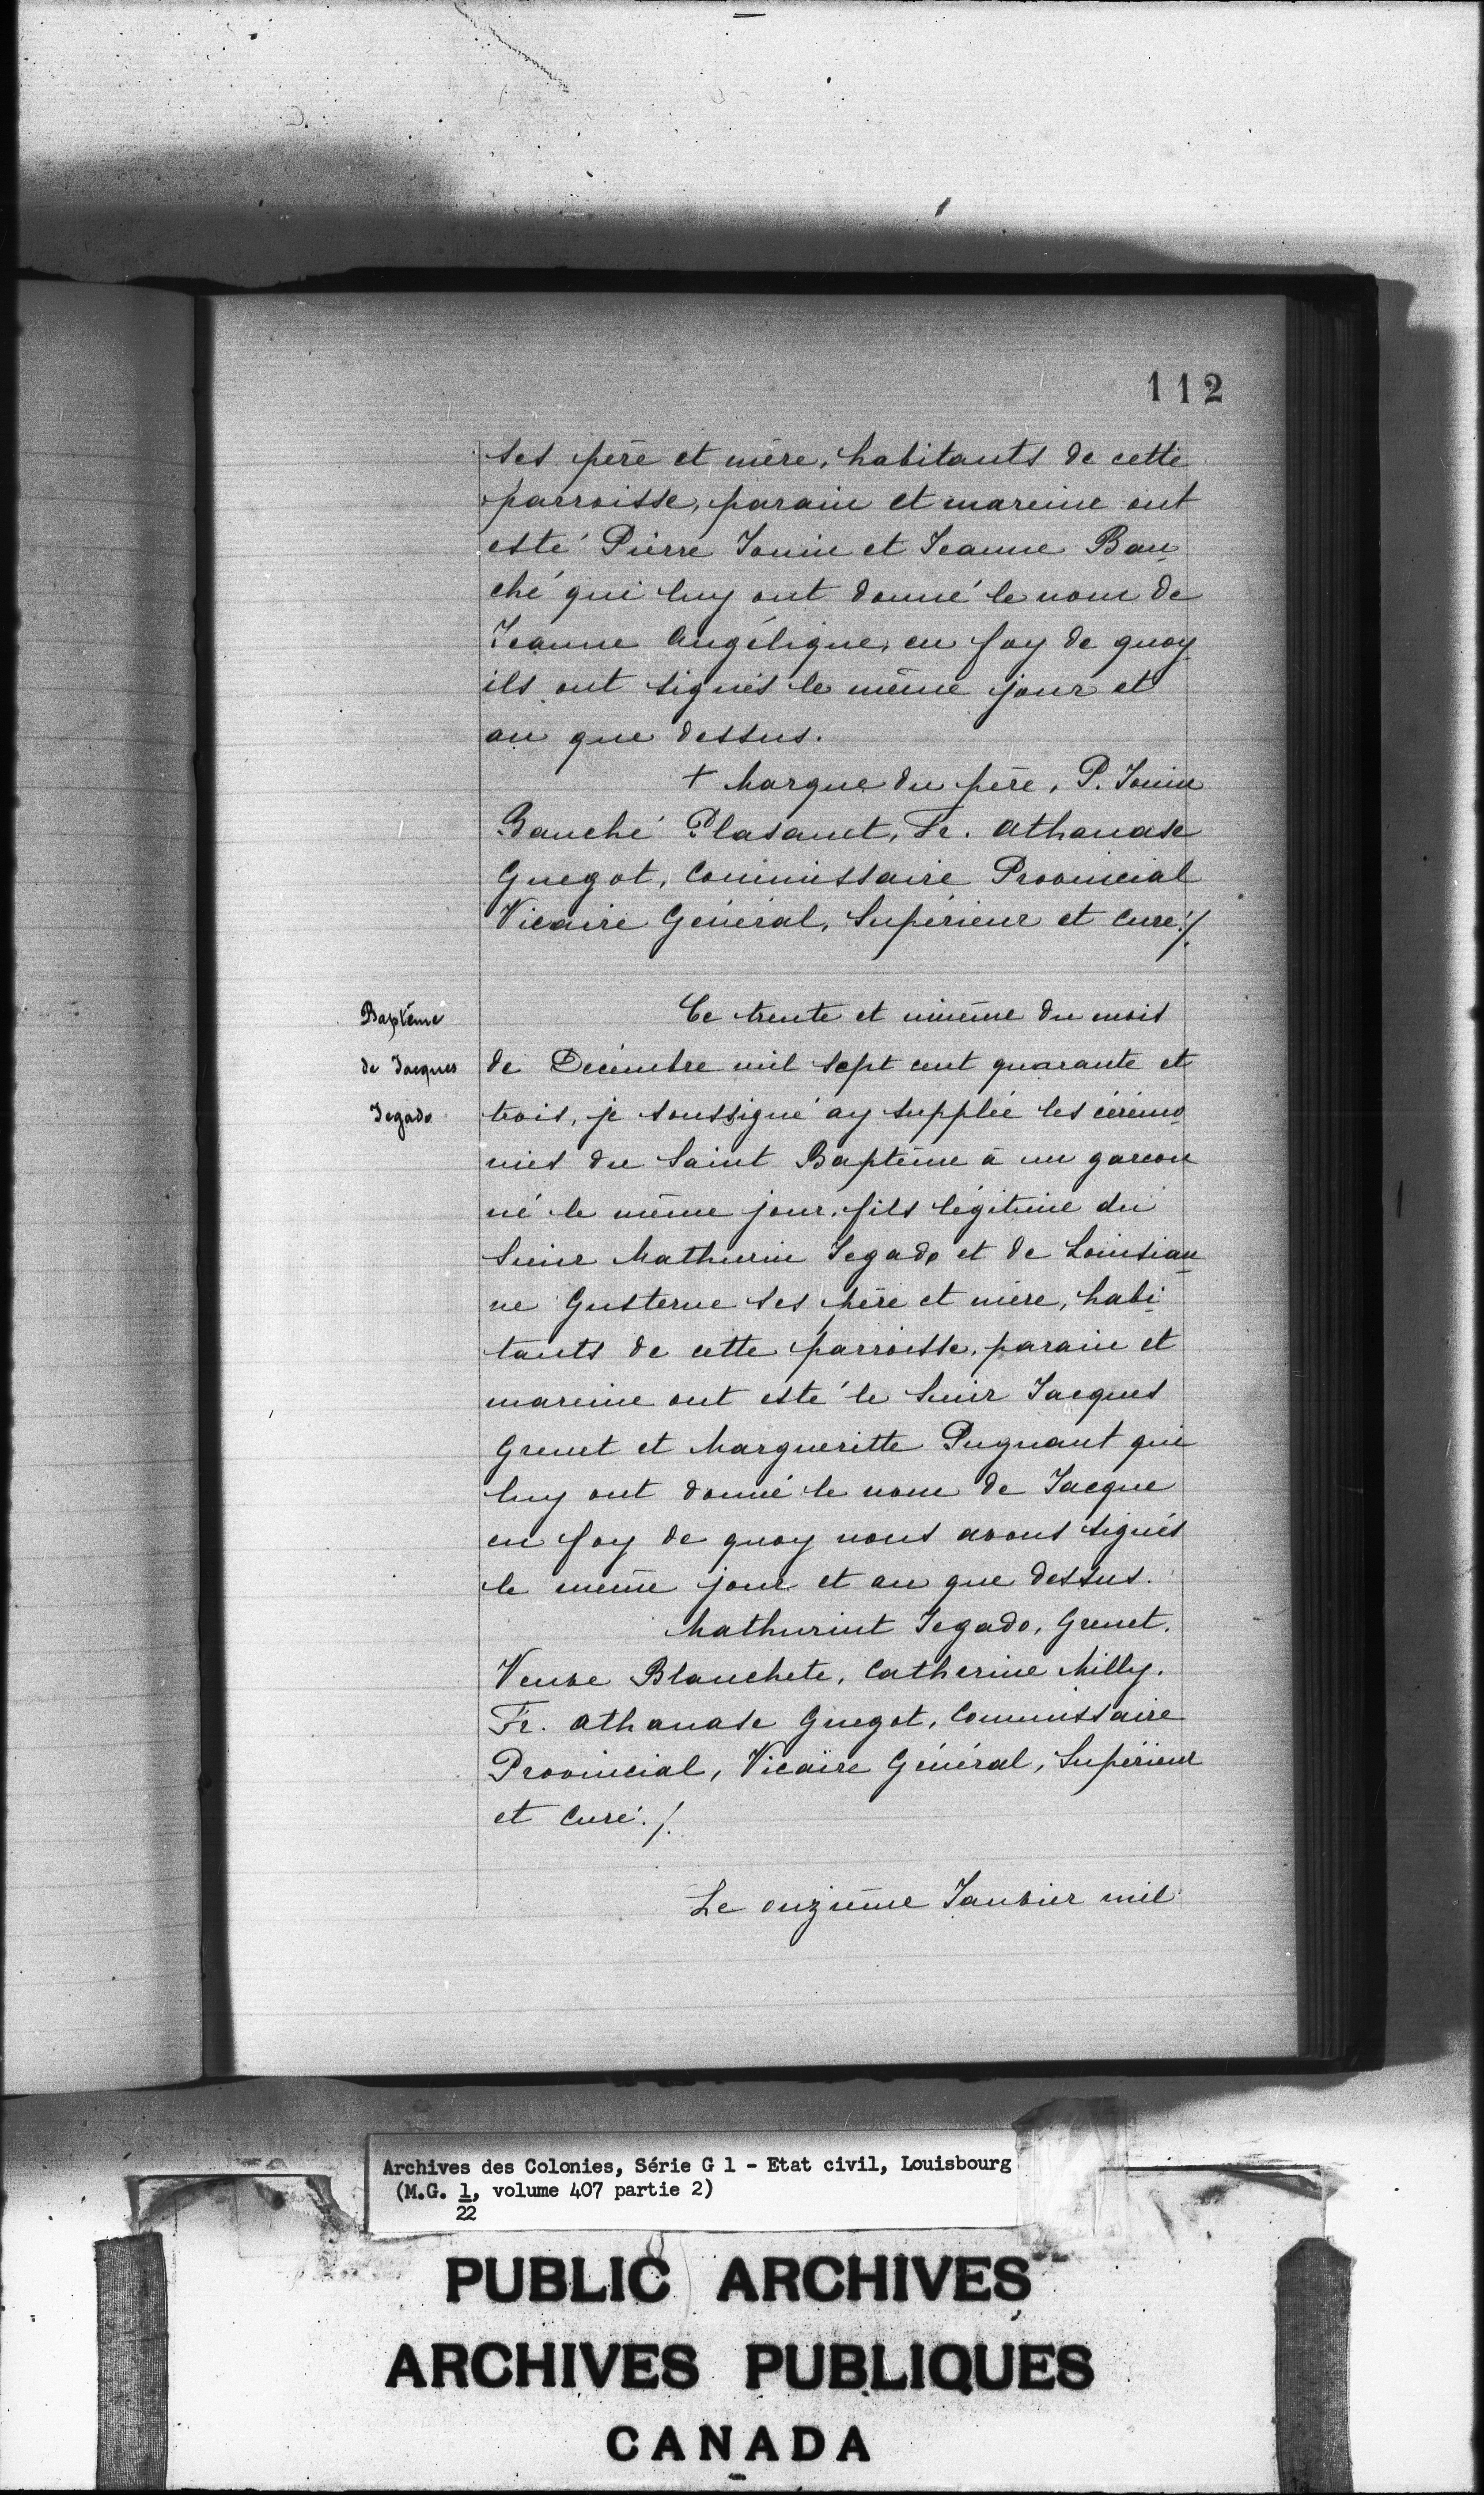 112
ses père et mère, habitants de cette
parroisse, parain et mareine ont
esté Pierre Jouin et Jeanne Bau
ché qui luy ont donné le nom de
Jeanne Angélique, en foy de quoy
ils ont signés le même jour et
an que dessus.
+ Marque du père, P. Jouin
Bauché Plasanet, Fr. Athanase
Guegot, Commissaire Provincial
Vicaire Général, Supérieur et Curé ./.
Baptême
de Jacques
Jegado
Ce trente et unième du mois
de Décembre mil sept cent quarante et
trois, je soussigné ay supplée les cérémo
nies du Saint Baptême à un garcon
né le même jour, fils légitime du
Sieur Mathurin Jegado et de Louisian
ne Gusterne ses père et mère, habi
tants de cette parroisse, parain et
mareine ont esté le Sieur Jacques
Grenet et Margueritte Pugnant qui
luy ont donné le nom de Jacque
en foy de quoy nous avons signés
le même jour et an que dessus.
Mathurint Jegado, Grenet,
Veuve Blanchete, Catherine Milly.
Fr. Athanase Guegot, Commissaire
Provincial, Vicaire Général, Supérieur
et Curé ./.
Le onzième Janvier mil
Archives des Colonies, Série G 1 - Etat civil, Louisbourg
(M.G. 1, volume 407 partie 2)
22
PUBLIC ARCHIVES
ARCHIVES PUBLIQUES
CANADA